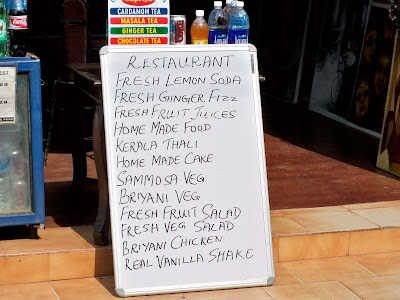 CARDAMOM TEA
MASALA TEA
GINGER TEA
CHOCOLATE TEA
RESTAURANT
FRESH LEMON SODA
FRESH GINGER FIZZ
FRESH FRUIT JUICES
HOME MADE FOOD
KERALA THALI
HOME MADE CAKE
SAMMOSA VEG
BRIYANI VEG
FRESH FRUIT SALAD
FRESH VEG SALAD
BRIYANI CHICKEN
REAL VANILLA SHAKE